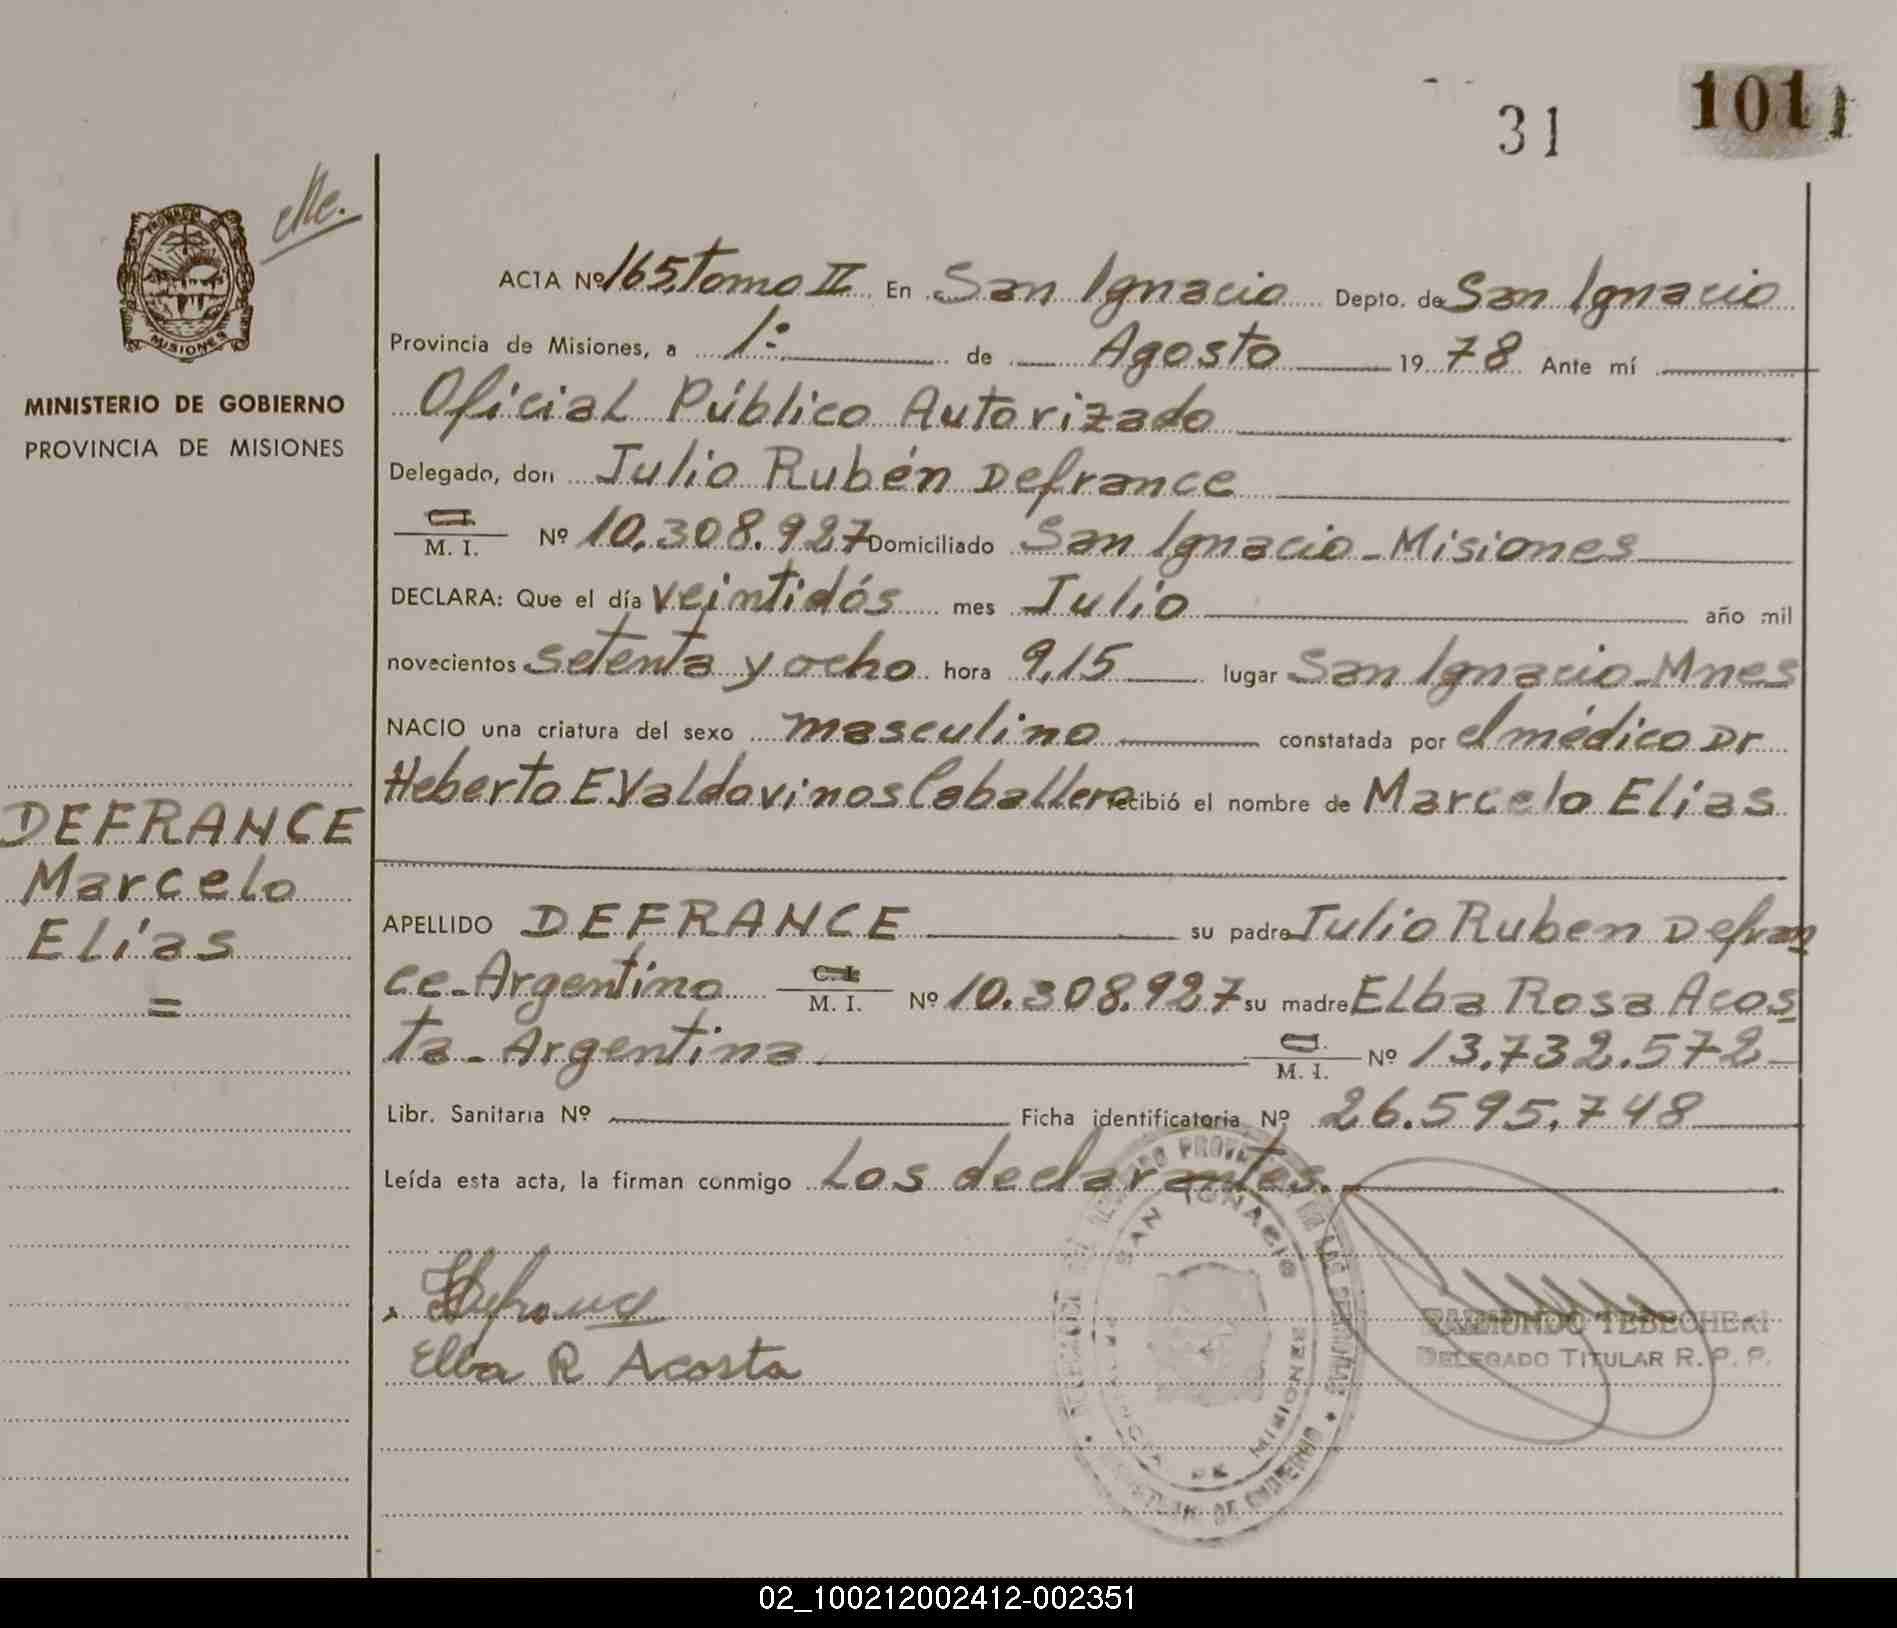 31 1011
PROVINCIA DE
MISIONES
MINISTERIO DE GOBIERNO
PROVINCIA DE MISIONES
ACTA Nº 165, Tomo II En San Ignacio Depto. de San Ignacio
Provincia de Misiones, a 1º de Agosto 1978 Ante mí
Oficial Público Autorizado
Delegado, don Julio Rubén Defrance
C.I.
M. I. Nº 10.308.927 Domiciliado San Ignacio - Misiones
DECLARA: Que el día veintidós mes Julio año mil
novecientos setenta y ocho hora 9,15 lugar San Ignacio - Mnes
NACIO una criatura del sexo masculino constatada por el médico Dr
Heberto E. Valdovinos Caballero recibió el nombre de Marcelo Elias
DEFRANCE
Marcelo
Elías
=
APELLIDO DEFRANCE su padre Julio Ruben Defran
ce - Argentino C. I.
M. I. Nº 10.308.927 su madre Elba Rosa Acos
ta - Argentina C.I.
M. I. Nº 13.732.572 -
Libr. Sanitaria Nº Ficha identificatoria Nº 26.595.748
Leída esta acta, la firman conmigo Los declarantes.
Elba R Acosta
SAN IGNACIO
PROVINCIA DE MISIONES
RAIMUNDO TEBECHERI
DELEGADO TITULAR R. P. P.
02_100212002412-002351